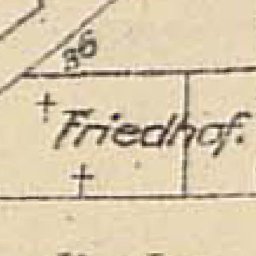 36
Friedhof.